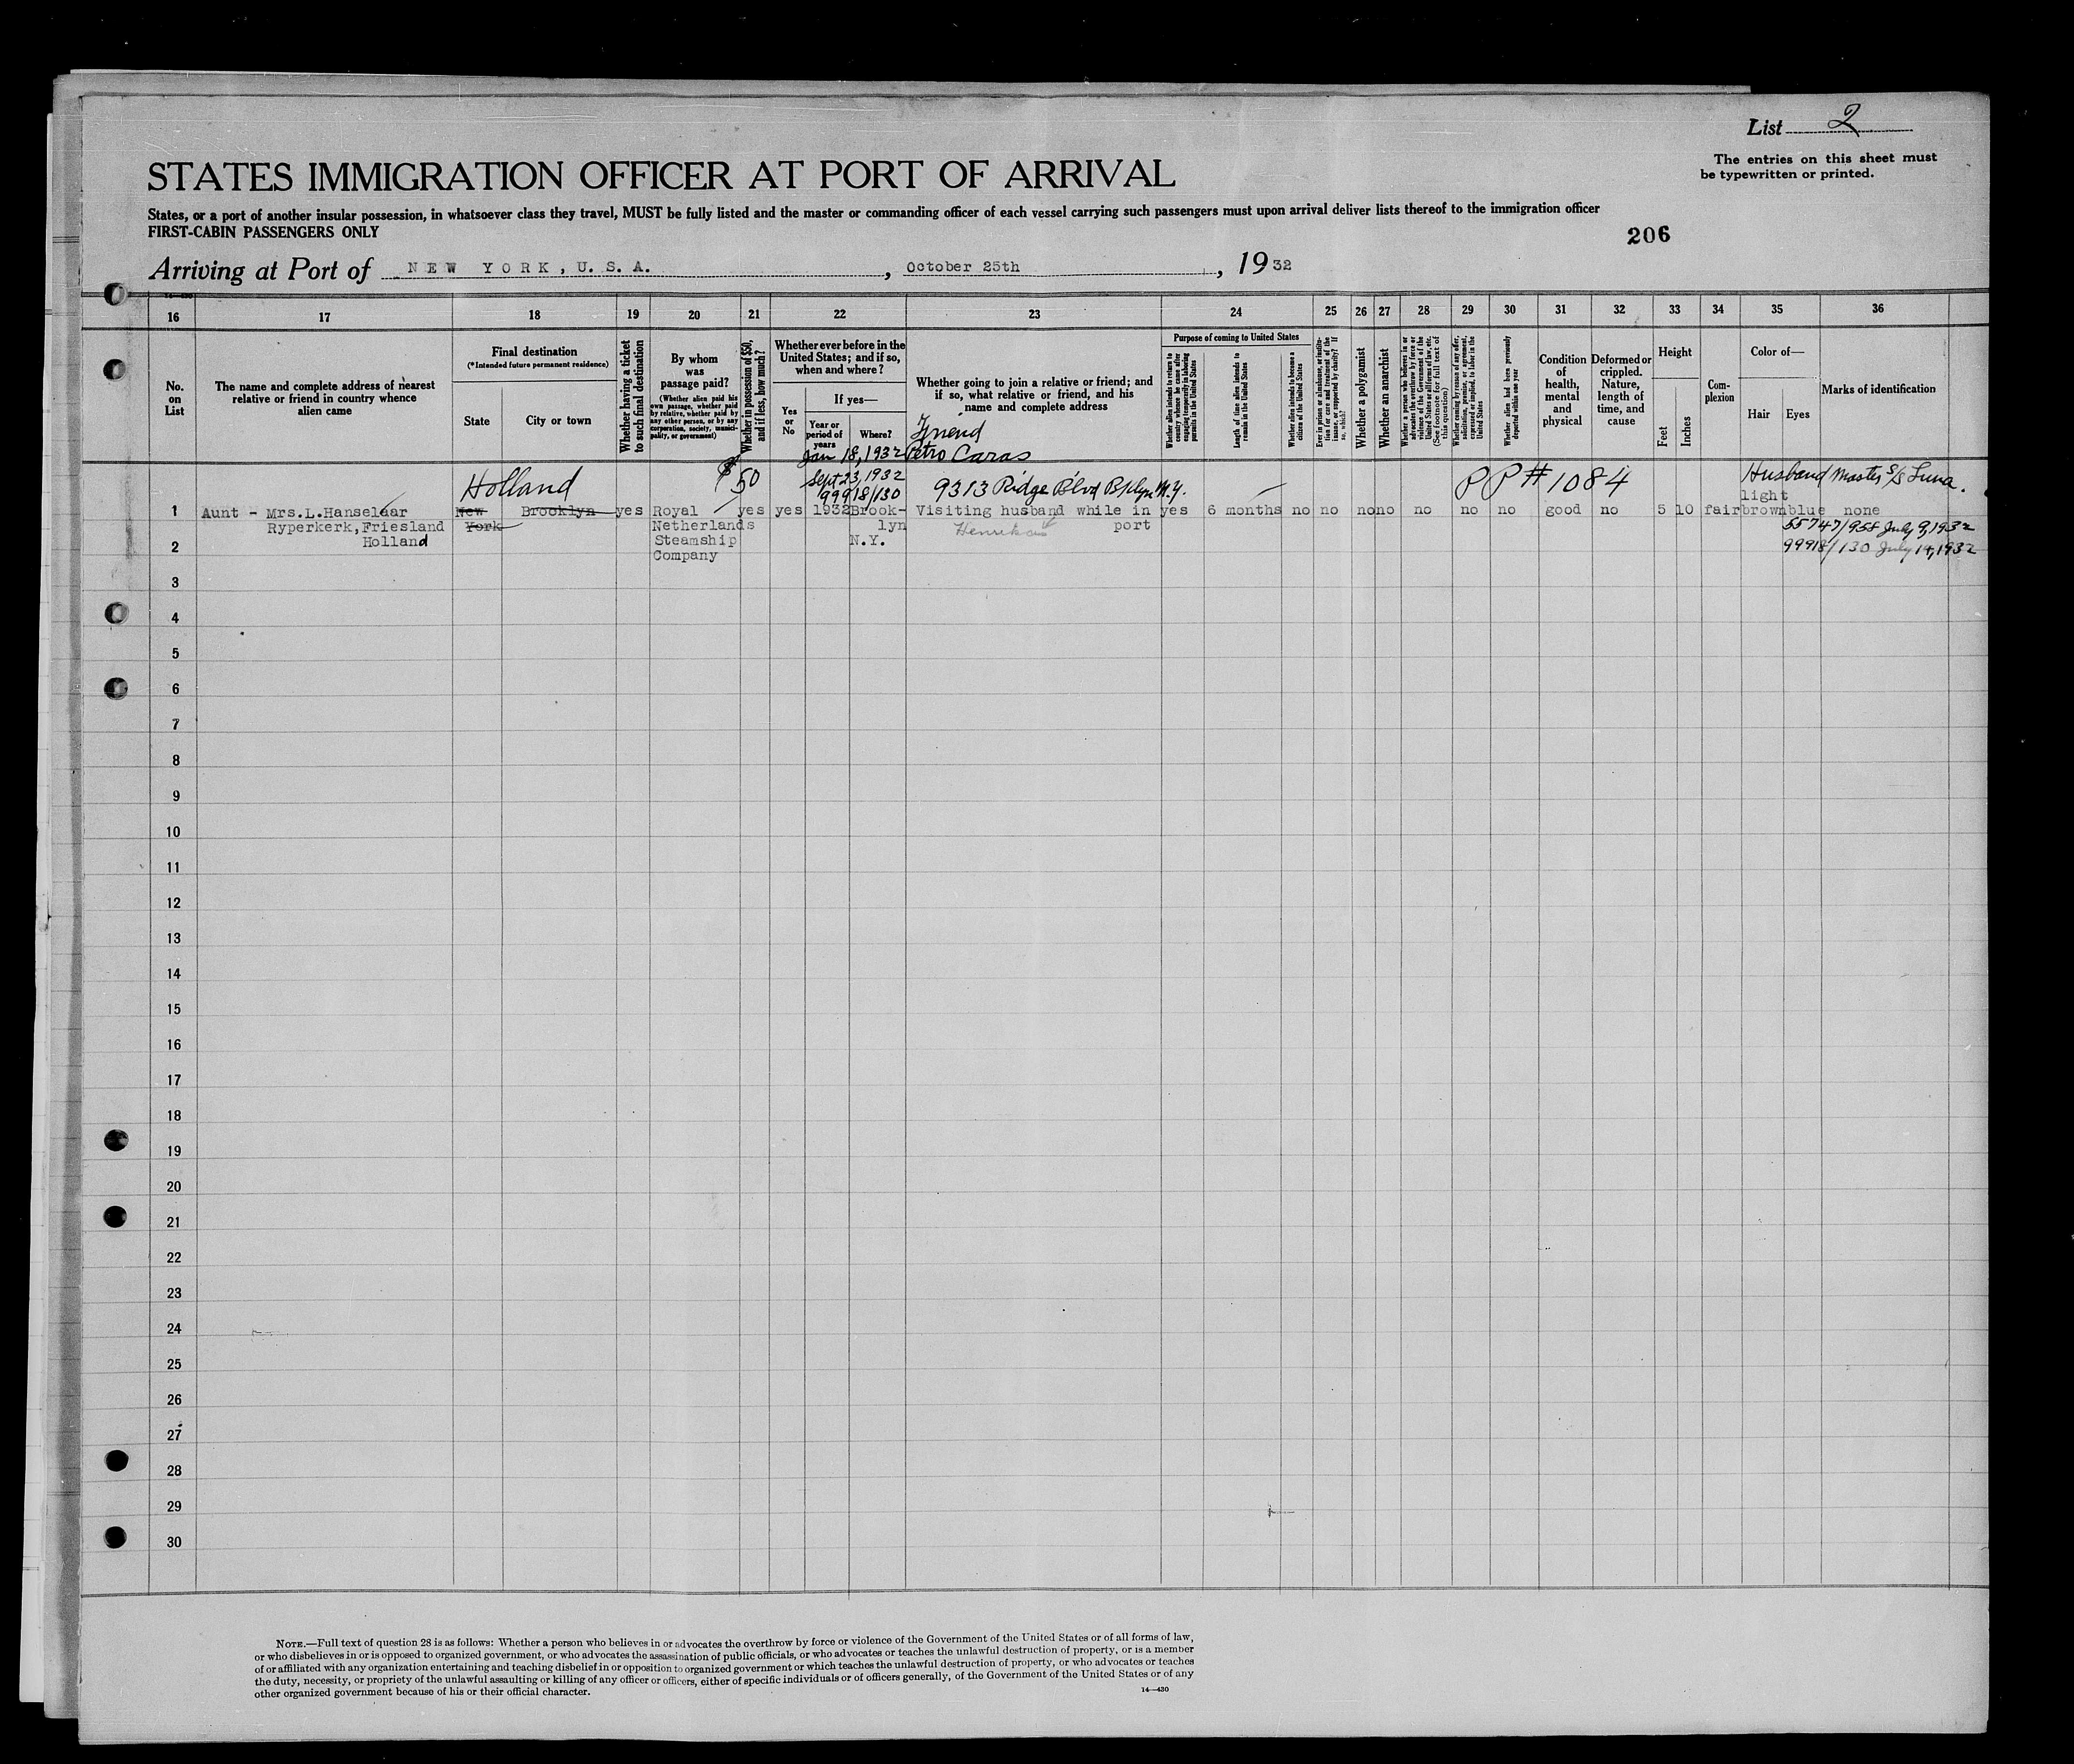 List 2
The entries on this sheet must
be typewritten or printed.
STATES IMMIGRATION OFFICER AT PORT OF ARRIVAL
States, or a port of another insular possession, in whatsoever class they travel, MUST be fully listed and the master or commanding officer of each vessel carrying such passengers must upon arrival deliver lists thereof to the immigration officer
FIRST-CABIN PASSENGERS ONLY
206
Arriving at Port of NEW YORK, U.S.A., October 25th, 1932
16 17 18 19 20 21 22 23 24 25 26 27 28 29 30 31 32 33 34 35 36
No. on List
The name and complete address of nearest
relative or friend in country whence
alien came
Final destination
(*Intended future permanent residence)
State
City or town
Whether having a ticket
to such final destination
By whom
was
passage paid?
(Whether alien paid his
own passage, whether paid
by relative, whether paid by
any other person, or by any
corporation, society, munici-
pality, or government)
Whether in possession of $50,
and if less, how much?
Whether ever before in the
United States; and if so,
when and where?
Yes
or
No
If yes—
Year or
period of
years
Where?
Whether going to join a relative or friend; and
if so, what relative or friend, and his
name and complete address
Purpose of coming to United States
Whether alien intends to return to
country whence he came after
engaging temporarily in laboring
pursuits in the United States
Length of time alien intends to
remain in the United States
Whether alien intends to become a
citizen of the United States
Ever in prison or almshouse, or institu-
tion for care and treatment of the
insane, or supported by charity? If
so, which?
Whether a polygamist
Whether an anarchist
Whether a person who believes in or
advocates the overthrow by force or
violence of the Government of the
United States or all forms of law, etc.
(See footnote for full text of
this question)
Whether coming by reason of any offer,
solicitation, promise, or agreement,
expressed or implied, to labor in the
United States
Whether alien had been previously
deported within one year
Condition
of
health,
mental
and
physical
Deformed or
crippled.
Nature,
length of
time, and
cause
Height
Feet
Inches
Com-
plexion
Color of—
Hair
Eyes
Marks of identification
Friend
Jan 18, 1932 Petro Caras
Holland $50 Sept 23, 1932 9313 Ridge Blvd Bklyn N.Y. PP# 1084 Husband Master S/S Luna.
99918/130
light
1 Aunt - Mrs.L.Hanselaar New Brooklyn yes Royal yes yes 1932 Brook- Visiting husband while in yes 6 months no no no no no no no good no 5 10 fair brown blue none
Ryperkerk,Friesland York Netherlands lyn port
55747/955 July 9, 1932
2 Holland Steamship N.Y.
99918/130 July 14, 1932
Company
3
4
5
6
7
8
9
10
11
12
13
14
15
16
17
18
19
20
21
22
23
24
25
26
27
28
29
30
NOTE.—Full text of question 28 is as follows: Whether a person who believes in or advocates the overthrow by force or violence of the Government of the United States or of all forms of law,
or who disbelieves in or is opposed to organized government, or who advocates the assassination of public officials, or who advocates or teaches the unlawful destruction of property, or is a member
of or affiliated with any organization entertaining and teaching disbelief in or opposition to organized government or which teaches the unlawful destruction of property, or who advocates or teaches
the duty, necessity, or propriety of the unlawful assaulting or killing of any officer or officers, either of specific individuals or of officers generally, of the Government of the United States or of any
other organized government because of his or their official character.
14—430